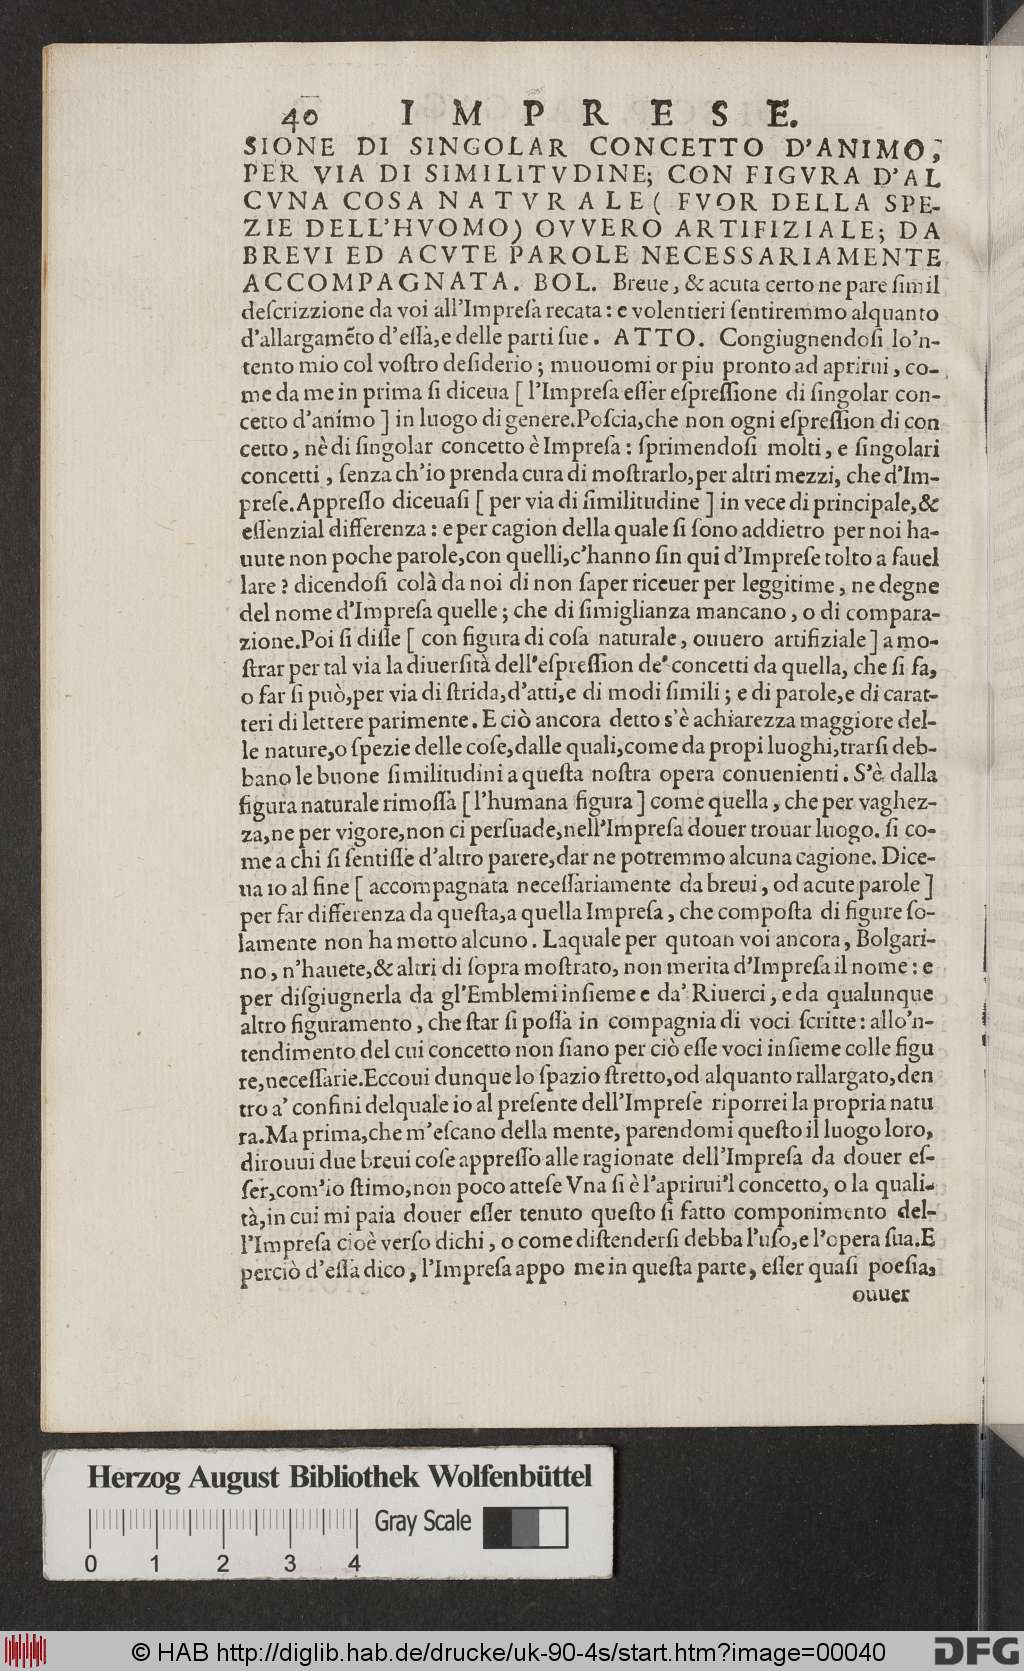 40 IMPRESE.
SIONE DI SINGOLAR CONCETTO D'ANIMO,
PER VIA DI SIMILITVDINE; CON FIGVRA D'AL
CVNA COSA NATVRALE ( FVOR DELLA SPE-
ZIE DELL'HVOMO) OVVERO ARTIFIZIALE; DA
BREVI ED ACVTE PAROLE NECESSARIAMENTE
ACCOMPAGNATA. BOL. Breue, & acuta certo ne pare ſimil
deſcrizzione da voi all'Impreſa recata: e volentieri ſentiremmo alquanto
d'allargamẽto d'eſſa, e delle parti ſue. ATTO. Congiugnendoſi lo'n-
tento mio col voſtro deſiderio; muouomi or piu pronto ad aprirui, co-
me da me in prima ſi diceua [ l'Impreſa eſſer eſpreſſione di ſingolar con-
cetto d'animo ] in luogo di genere. Poſcia, che non ogni eſpreſſion di con
cetto, nè di ſingolar concetto è Impreſa: ſprimendoſi molti, e ſingolari
concetti, ſenza ch'io prenda cura di moſtrarlo, per altri mezzi, che d'Im-
preſe. Appreſſo diceuaſi [ per via di ſimilitudine ] in vece di principale, &
eſſenzial differenza: e per cagion della quale ſi ſono addietro per noi ha-
uute non poche parole, con quelli, c'hanno ſin qui d'Impreſe tolto a fauel
lare? dicendoſi colà da noi di non ſaper riceuer per leggitime, ne degne
del nome d'Impreſa quelle; che di ſimiglianza mancano, o di compara-
zione. Poi ſi diſſe [ con figura di coſa naturale, ouuero artifiziale ] a mo-
ſtrar per tal via la diuerſità dell'eſpreſſion de' concetti da quella, che ſi fa,
o far ſi può, per via di ſtrida, d'atti, e di modi ſimili; e di parole, e di carat-
teri di lettere parimente. E ciò ancora detto s'è a chiarezza maggiore del-
le nature, o ſpezie delle coſe, dalle quali, come da propi luoghi, trarſi deb-
bano le buone ſimilitudini a queſta noſtra opera conuenienti. S'è dalla
figura naturale rimoſſa [ l'humana figura ] come quella, che per vaghez-
za, ne per vigore, non ci perſuade, nell'Impreſa douer trouar luogo. ſi co-
me a chi ſi ſentiſſe d'altro parere, dar ne potremmo alcuna cagione. Dice-
ua io al fine [ accompagnata neceſſariamente da breui, od acute parole ]
per far differenza da queſta, a quella Impreſa, che compoſta di figure ſo-
lamente non ha motto alcuno. Laquale per qutoan voi ancora, Bolgari-
no, n'hauete, & altri di ſopra moſtrato, non merita d'Impreſa il nome: e
per diſgiugnerla da gl'Emblemi inſieme e da' Riuerci, e da qualunque
altro figuramento, che ſtar ſi poſſa in compagnia di voci ſcritte: allo'n-
tendimento del cui concetto non ſiano per ciò eſſe voci inſieme colle figu
re, neceſſarie. Eccoui dunque lo ſpazio ſtretto, od alquanto rallargato, den
tro a' confini del quale io al preſente dell'Impreſe riporrei la propria natu
ra. Ma prima, che m'eſcano della mente, parendomi queſto il luogo loro,
dirouui due breui coſe appreſſo alle ragionate dell'Impreſa da douer eſ-
ſer, com'io ſtimo, non poco atteſe Vna ſi è l'aprirui'l concetto, o la quali-
tà, in cui mi paia douer eſſer tenuto queſto ſi fatto componimento del-
l'Impreſa cioè verſo dichi, o come diſtenderſi debba l'uſo, e l'opera ſua. E
perciò d'eſſa dico, l'Impreſa appo me in queſta parte, eſſer quaſi poeſia,
ouuer
Herzog August Bibliothek Wolfenbüttel
Gray Scale
0 1 2 3 4
© HAB http://diglib.hab.de/drucke/uk-90-4s/start.htm?image=00040
DFG